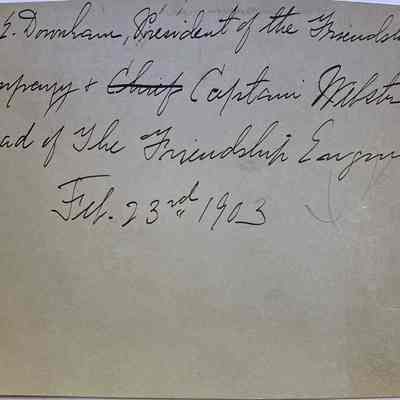 E. Downham, President of the Friendsh
mpany & Chief Captain Webst
ad of The Friendship Engin
Feb. 23rd 1903